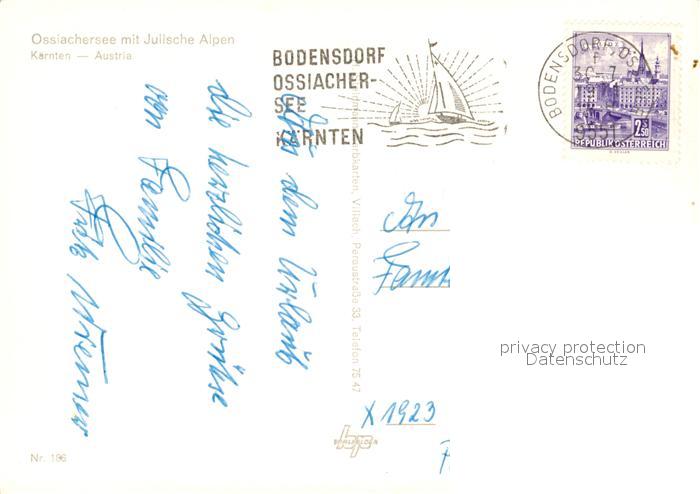 Ossiachersee mit Julische Alpen
Kärnten — Austria
BODENSDORF
OSSIACHER-
SEE
KÄRNTEN
BODENSDORF, OSS
9551
2.50
REPUBLIK ÖSTERREICH
Aus dem Urlaub
die herzlichen Grüße
von Familie
An
Fam
Villach, Peraustraße 33, Telefon 75 47
X 1923
privacy protection
Datenschutz
bp
Nr. 196